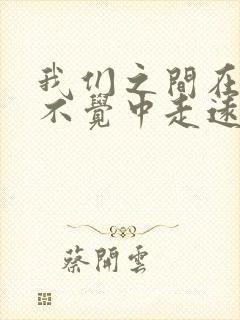 我们之間在
不覺中走遠
蔡開雲